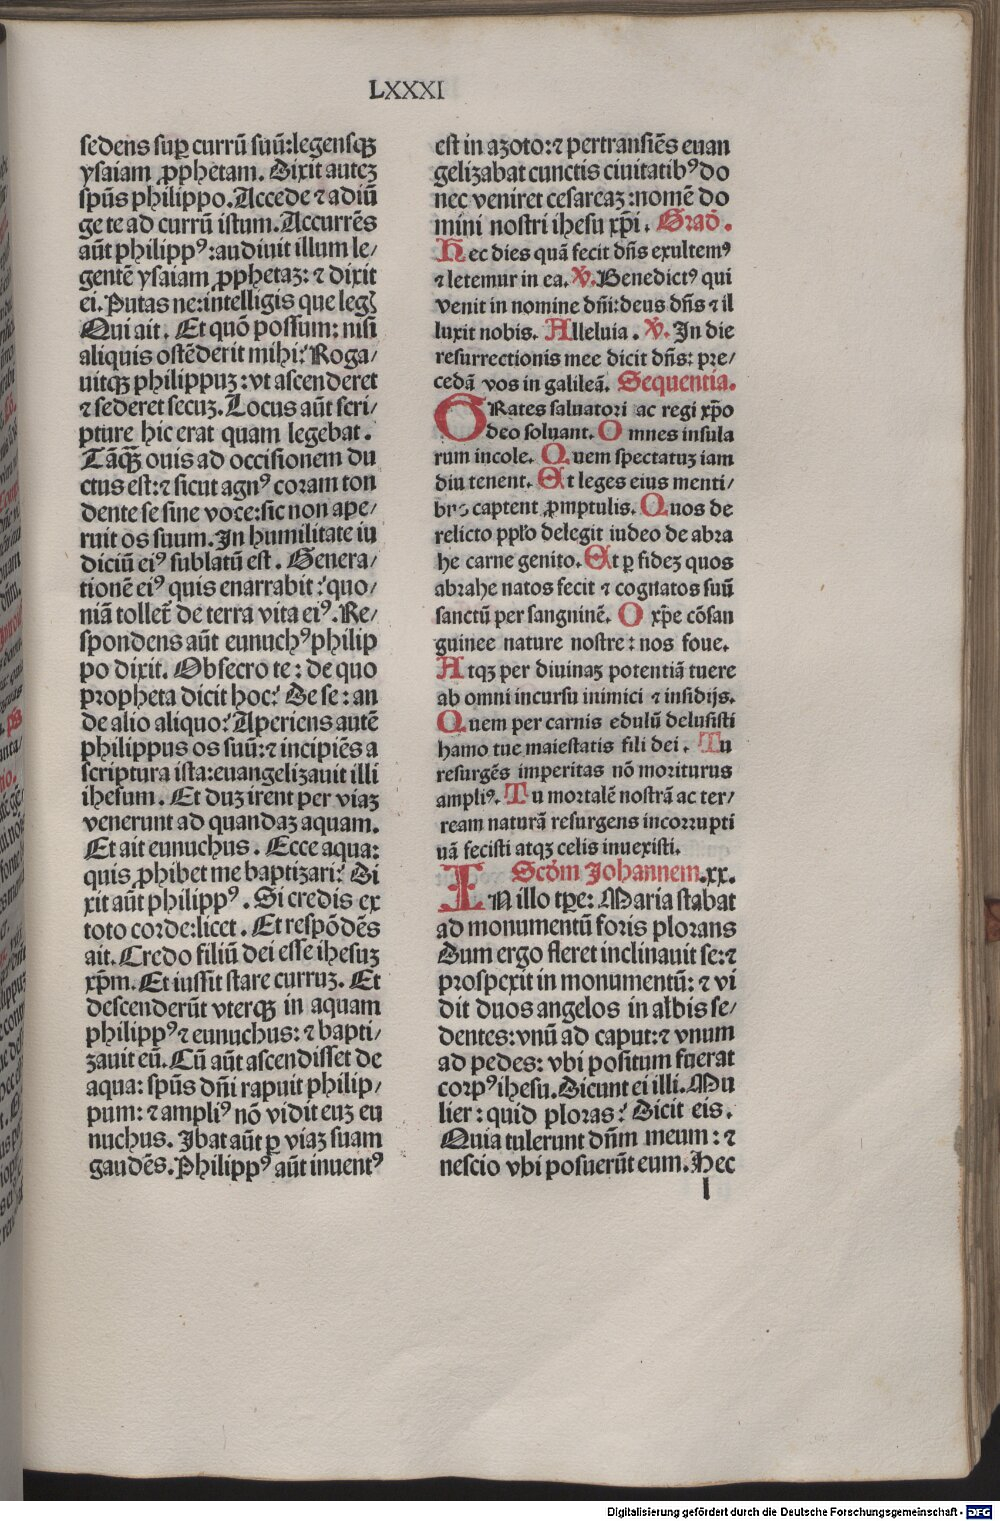 LXXXI
sedens sup̲ currū suū:legensqꝫ
ysaiam ꝓphetam. Dixit auteꝫ
spūs philippo.Accede ⁊ adiū
ge te ad currū istum.Accurrēs
aūt philippꝰ:audiuit illum le/
gentē ysaiam ꝓphetaꝫ: ⁊ dixit
ei. Putas ne:intelligis que legꝭ
Qui ait. Et quō possum: nisi
aliquis ostēderit mihi? Roga/
uitqꝫ philippuꝫ:vt ascenderet
⁊ sederet secuꝫ. Locus aūt scri/
pture hic erat quam legebat.
Tāqꝫ ouis ad occisionem du
ctus est:⁊ sicut agnꝰ coram ton
dente se sine voce:sic non ape/
ruit os suum. In humilitate iu
diciū eiꝰ sublatū est. Genera/
tionē eiꝰ quis enarrabit? quo/
niā tolleť de terra vita eiꝰ. Re/
spondens aūt eunuchꝰ philip
po dixit. Obsecro te: de quo
propheta dicit hoc? De se: an
de alio aliquo? Aperiens autē
philippus os suū:⁊ incipiēs a
scriptura ista:euangelizauit illi
ihesum. Et duꝫ irent per viaꝫ
venerunt ad quandaꝫ aquam.
Et ait eunuchus. Ecce aqua:
quis ꝓhibet me baptizari? Di
xit aūt philippꝰ. Si credis ex
toto corde:licet. Et respōdēs
ait. Credo filiū dei esse ihesuꝫ
xp̄m. Et iussit stare curruꝫ. Et
descenderūt vterqꝫ in aquam
philippꝰ ⁊ eunuchus: ⁊ bapti/
zauit eū. Cū aūt ascendisset de
aqua: spūs dn̄i rapuit philip/
pum: ⁊ ampliꝰ nō vidit euꝫ eu
nuchus. Ibat aūt ꝑ viaꝫ suam
gaudēs. Philippꝰ aūt inuentꝰ
est in azoto:⁊ pertransiēs euan
gelizabat cunctis ciuitatibꝰ do
nec veniret cesareaꝫ:nomē do
mini nostri ihesu xp̄i. Grad̄.
Hec dies quā fecit dn̄s exultemꝰ
⁊ letemur in ea. ℣. Benedictꝰ qui
venit in nomine dn̄i:deus dn̄s ⁊ il
luxit nobis. Alleluia. ℣. In die
resurrectionis mee dicit dn̄s: pre/
cedā vos in galileā. Sequentia.
GRates saluatori ac regi xp̄o
deo soluant. Omnes insula
rum incole. Quem spectatuꝫ iam
diu tenent. Et leges eius menti/
bus captent ꝓmptulis. Quos de
relicto pp̄lo delegit iudeo de abra
he carne genito. Et ꝑ fideꝫ quos
abrahe natos fecit ⁊ cognatos suū
sanctū per sangninē. O xp̄e cōsan
guinee nature nostre: nos foue.
Atqꝫ per diuinaꝫ potentiā tuere
ab omni incursu inimici ⁊ insidijs.
Quem per carnis edulū delusisti
hamo tue maiestatis fili dei. Tu
resurgēs imperitas nō moriturus
ampliꝰ. Tu mortalē nostrā ac ter/
ream naturā resurgens incorrupti
uā fecisti atqꝫ celis inuexisti.
Scd̄m Johannem.xx.
IN illo tp̄e: Maria stabat
ad monumentū foris plorans
Dum ergo fleret inclinauit se:⁊
prospexit in monumentū: ⁊ vi
dit duos angelos in albis se/
dentes:vnū ad caput:⁊ vnum
ad pedes: vbi positum fuerat
corpꝰ ihesu. Dicunt ei illi. Mu
lier: quid ploras? Dicit eis.
Quia tulerunt dn̄m meum: ⁊
nescio vbi posuerūt eum. Hec
l
Digitalisierung gefördert durch die Deutsche Forschungsgemeinschaft - DFG